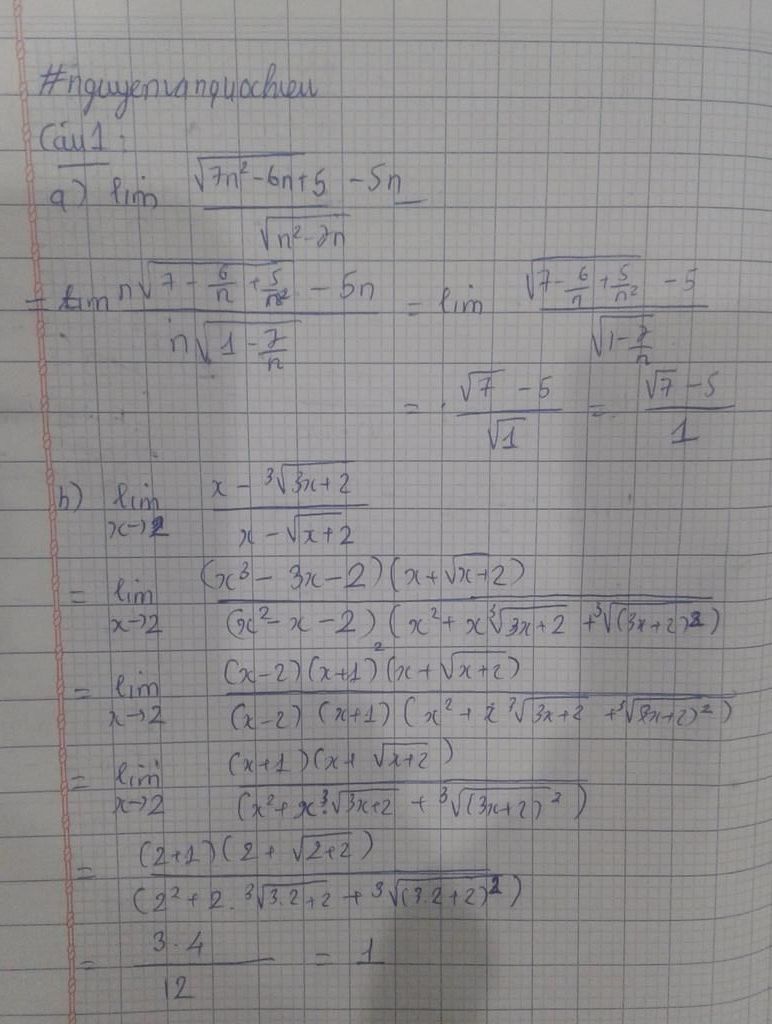 #nguyenvanquochieu
Câu 1:
a) lim (√(7n² - 6n + 5) - 5n) / √(n² - 7n)
= lim (n√(7 - 6/n + 5/n²) - 5n) / (n√(1 - 7/n)) = lim (√(7 - 6/n + 5/n²) - 5) / √(1 - 7/n)
= (√7 - 5) / √1 = (√7 - 5) / 1
b) lim x→2 (x - ³√(3x+2)) / (x - √(x+2))
= lim x→2 ((x³ - 3x - 2)(x + √(x+2))) / ((x² - x - 2)(x² + x ³√(3x+2) + ³√((3x+2)²)))
= lim x→2 ((x-2)(x+1)²(x + √(x+2))) / ((x-2)(x+1)(x² + x ³√(3x+2) + ³√((3x+2)²)))
= lim x→2 ((x+1)(x + √(x+2))) / (x² + x.³√(3x+2) + ³√((3x+2)²))
= ((2+1)(2 + √(2+2))) / (2² + 2.³√(3.2+2) + ³√((3.2+2)²))
= (3.4) / 12 = 1